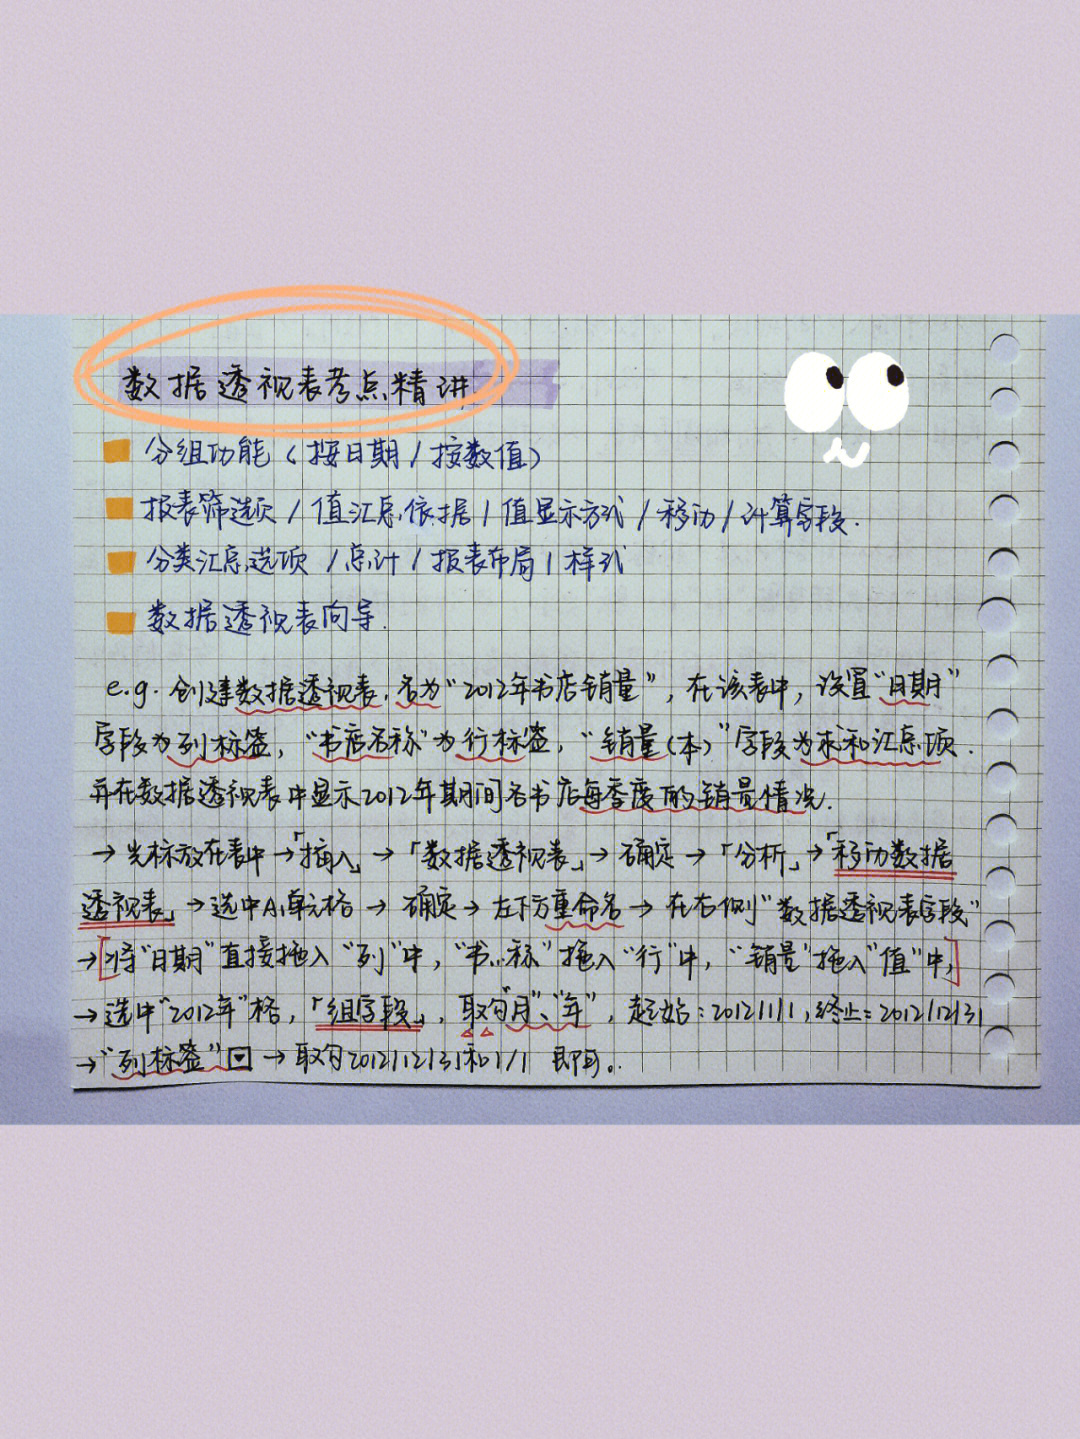 数据透视表考点精讲
分组功能（按日期/按数值）
报表筛选项/值汇总依据/值显示方式/移动/计算字段.
分类汇总选项/总计/报表布局/样式
数据透视表向导.
e.g. 创建数据透视表,名为“2012年书店销量”,在该表中,设置“日期”
字段为列标签,“书店名称”为行标签,“销量(本)”字段为求和汇总项.
并在数据透视表中显示2012年期间各书店每季度的销量情况.
→光标放在表中→「插入」→「数据透视表」→确定→「分析」→「移动数据
透视表」→选中A1单元格→确定→左下方重命名→在右侧“数据透视表字段”
→[将“日期”直接拖入“列”中,“书..称”拖入“行”中,“销量”拖入“值”中,]
→选中“2012年”格,「组字段」,取勾“月”、“年”,起始:2012/1/1,终止:2012/12/31
→“列标签”→取勾2012/12/31和1/1 即可。